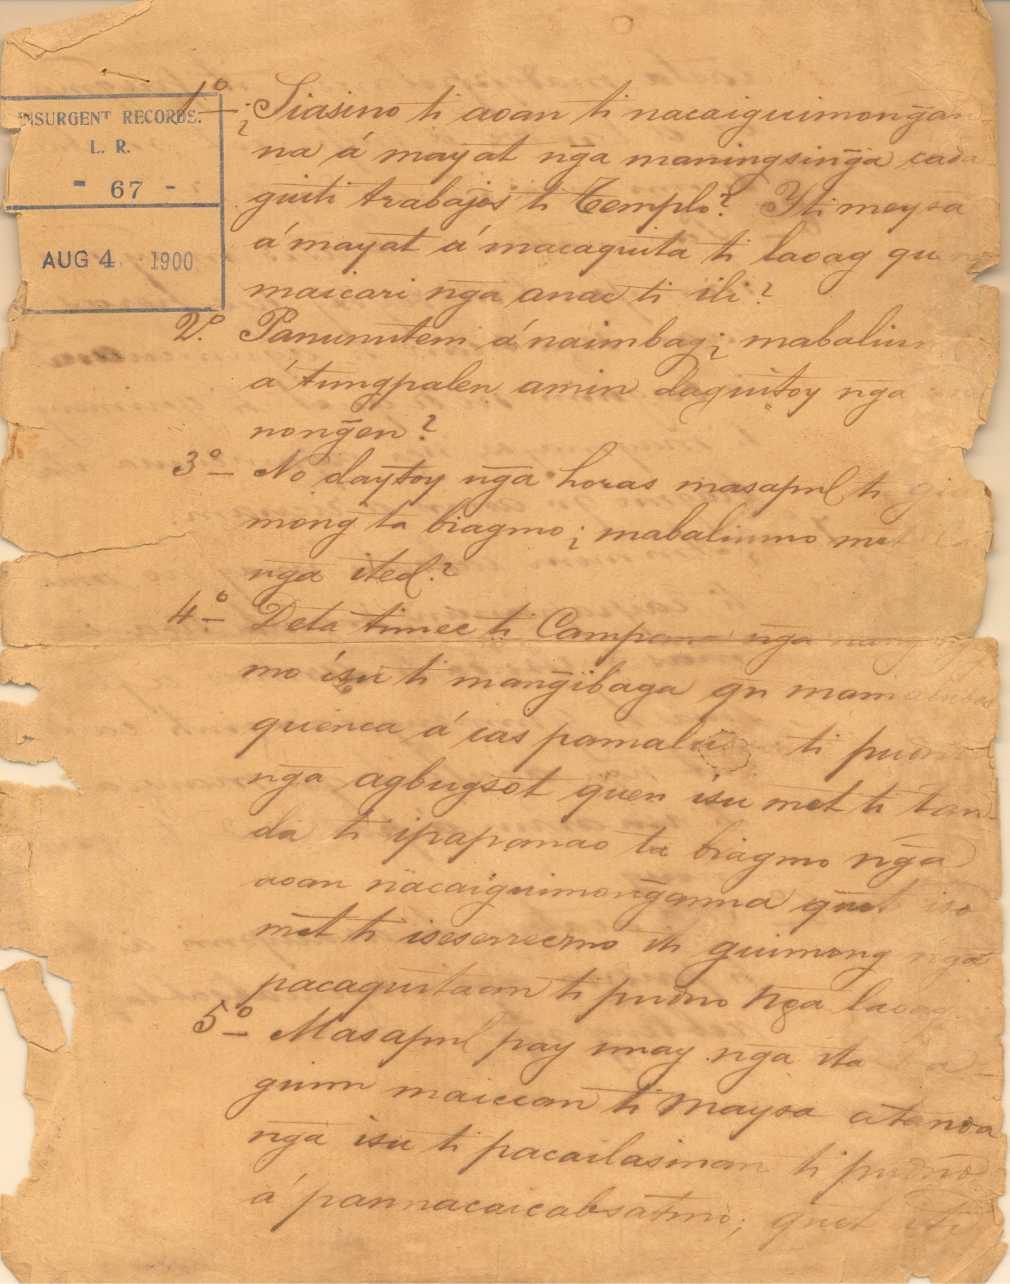 INSURGENT RECORDS.
L. R.
- 67 -
AUG 4 1900
1º ¿Siasino ti aoan ti nacaiguimong̃an
na á mayat ng̃a maningsing̃a cada
guiti trabajos ti Templo? Yti meysa
á mayat á macaquita ti laoag
maicari ng̃a anac ti ili?
2º. Panunutem á naimbag; ¿ mabalin
á tungpalen amin daguitoy ng̃a
nong̃en?
3º- No daytoy ng̃a horas masapul ti
mong ta biagmo; ¿ mabalinmo met
ng̃a ited?
4º- Deta timec ti Campana ng̃a
mo isu ti mang̃ibaga qn
quenca á cas pamaluan ti
ng̃a agbugsot quen isu met ti tan-
da ti ipapanao ta biagmo ng̃a
aoan nacaiguimong̃anna quet iso
met ti iseserrecmo iti guimong ng̃a
pacaquitaan ti pudno ng̃a laoag.
5º- Masapul pay unay ng̃a ita
guinn maiccan ti maysa a tanda
ng̃a isu ti pacailasinan ti pudno
á pannacaicabsatmo; quet iti